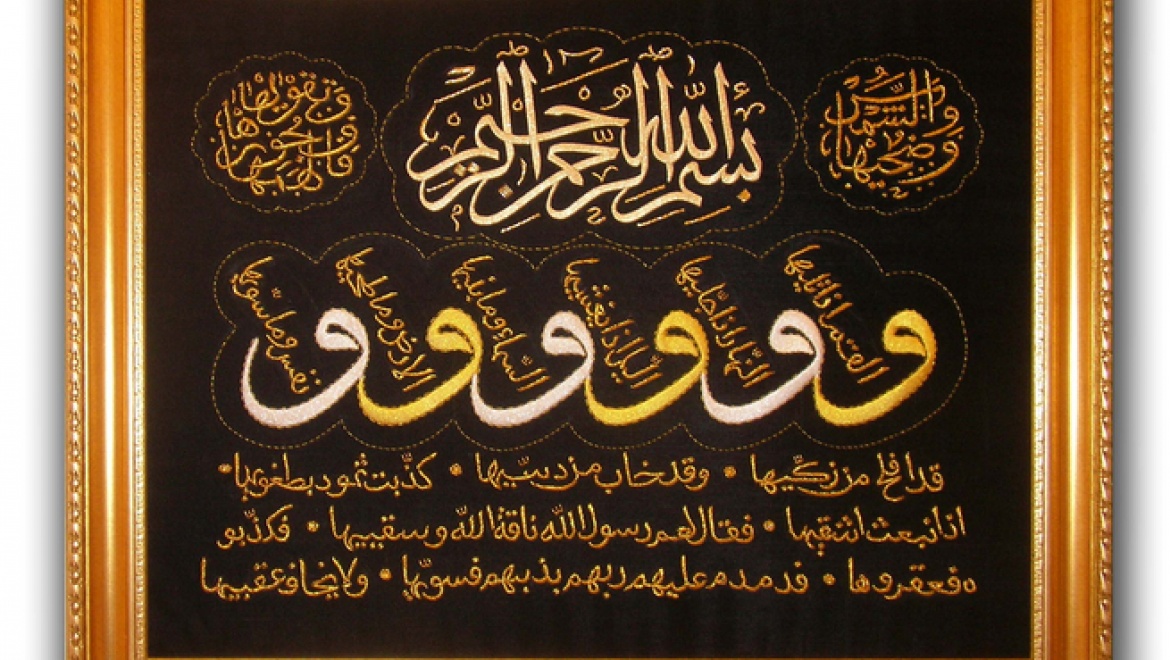 والشمس وضحيها
بسم الله الرحمن الرحيم
فالهمها فجورها وتقويها
و القمر اذا تليها
و النهار اذا جليها
و الليل اذا يغشيها
و السماء وما بنيها
و الارض وما طحيها
و نفس وما سويها
قد افلح من زكيها • وقد خاب من دسيها • كذبت ثمود بطغويها •
اذ انبعث اشقيها • فقال لهم رسول الله ناقة الله وسقييها • فكذبو
ه فعقروها • فدمدم عليهم ربهم بذنبهم فسويها • ولا يخاف عقبيها